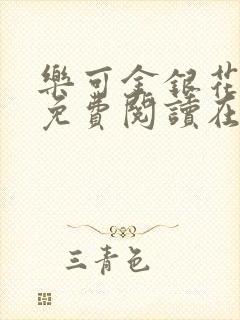 樂可金銀花
免費閱讀在
三青色